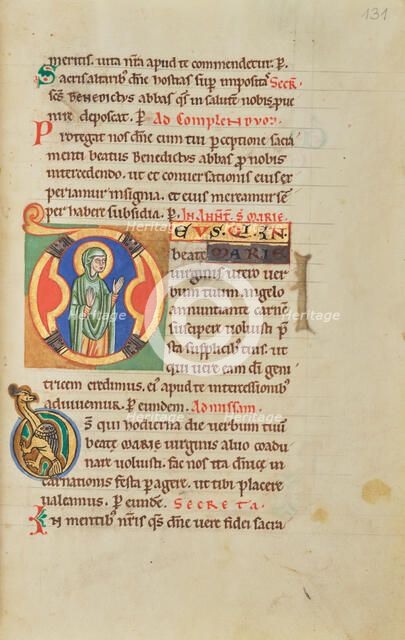 131
meritis. uita nr̄a apud te commendetur. P.
Sacris altarib; dn̄e hostias sup imposita Secr̄
sc̄s BENEDICTUS abbas qs̄ in salutē nobis pue
nire deposcat. P. Ad Complendum.
Protegat nos dn̄e cum tui pceptione sacra
menti beatus Benedictus abbas p nobis
intercedendo. ut et conuersationis eius ex
periamur insignia. et eius mereamur sēm
per habere subsidia. P. IN ANNT. S MARIE.
DEUS. QUI DN
BEATE MARIE
uirginis utero uer
bum tuum. angelo
annuntiante carnē
suscipere uoluisti. p
sta supplicib; tuis. ut
qui uere eam di geni
tricem credimus. ei apud te intercessionib;
adiuuemur. P. eundem. Ad missam.
DS qui hodierna die uerbum tuū
beate MARIE uirginis aluo coadu
nare uoluisti. fac nos ita dn̄ice in
carnationis festa pagere. ut tibi placere
ualeamus. P. eunde. SECRETA.
IN mentib; nr̄is qs̄ dn̄e uere fidei sacra
Heritage Images